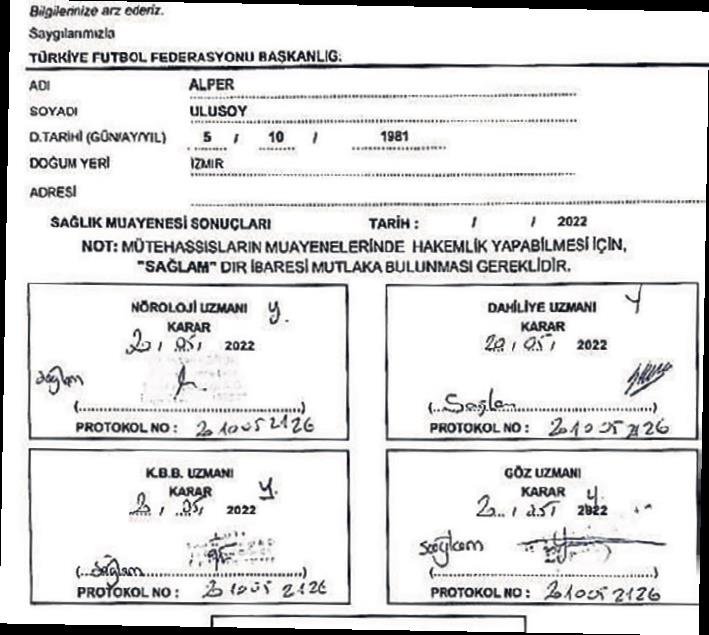 Bilgilerinize arz ederiz.
Saygılarımızla
TÜRKİYE FUTBOL FEDERASYONU BAŞKANLIĞ:
ADI ALPER
SOYADI ULUSOY
D.TARİHİ (GÜN/AY/YIL) 5 / 10 / 1981
DOĞUM YERİ İZMİR
ADRESİ
SAĞLIK MUAYENESİ SONUÇLARI TARİH : / / 2022
NOT: MÜTEHASSISLARIN MUAYENELERİNDE HAKEMLİK YAPABİLMESİ İÇİN,
"SAĞLAM" DIR İBARESİ MUTLAKA BULUNMASI GEREKLİDİR.
NÖROLOJİ UZMANI y.
KARAR
20 / 05 / 2022
sağlam
(....................)
PROTOKOL NO : 210052126
DAHİLİYE UZMANI y
KARAR
20 / 05 / 2022
(.. Sağlam ....................)
PROTOKOL NO : 210052126
K.B.B. UZMANI y.
KARAR
/ 05 / 2022
(.. sağlam ....................)
PROTOKOL NO : 210052126
GÖZ UZMANI y
KARAR
/ 05 / 2022
sağlam
(....................)
PROTOKOL NO : 210052126